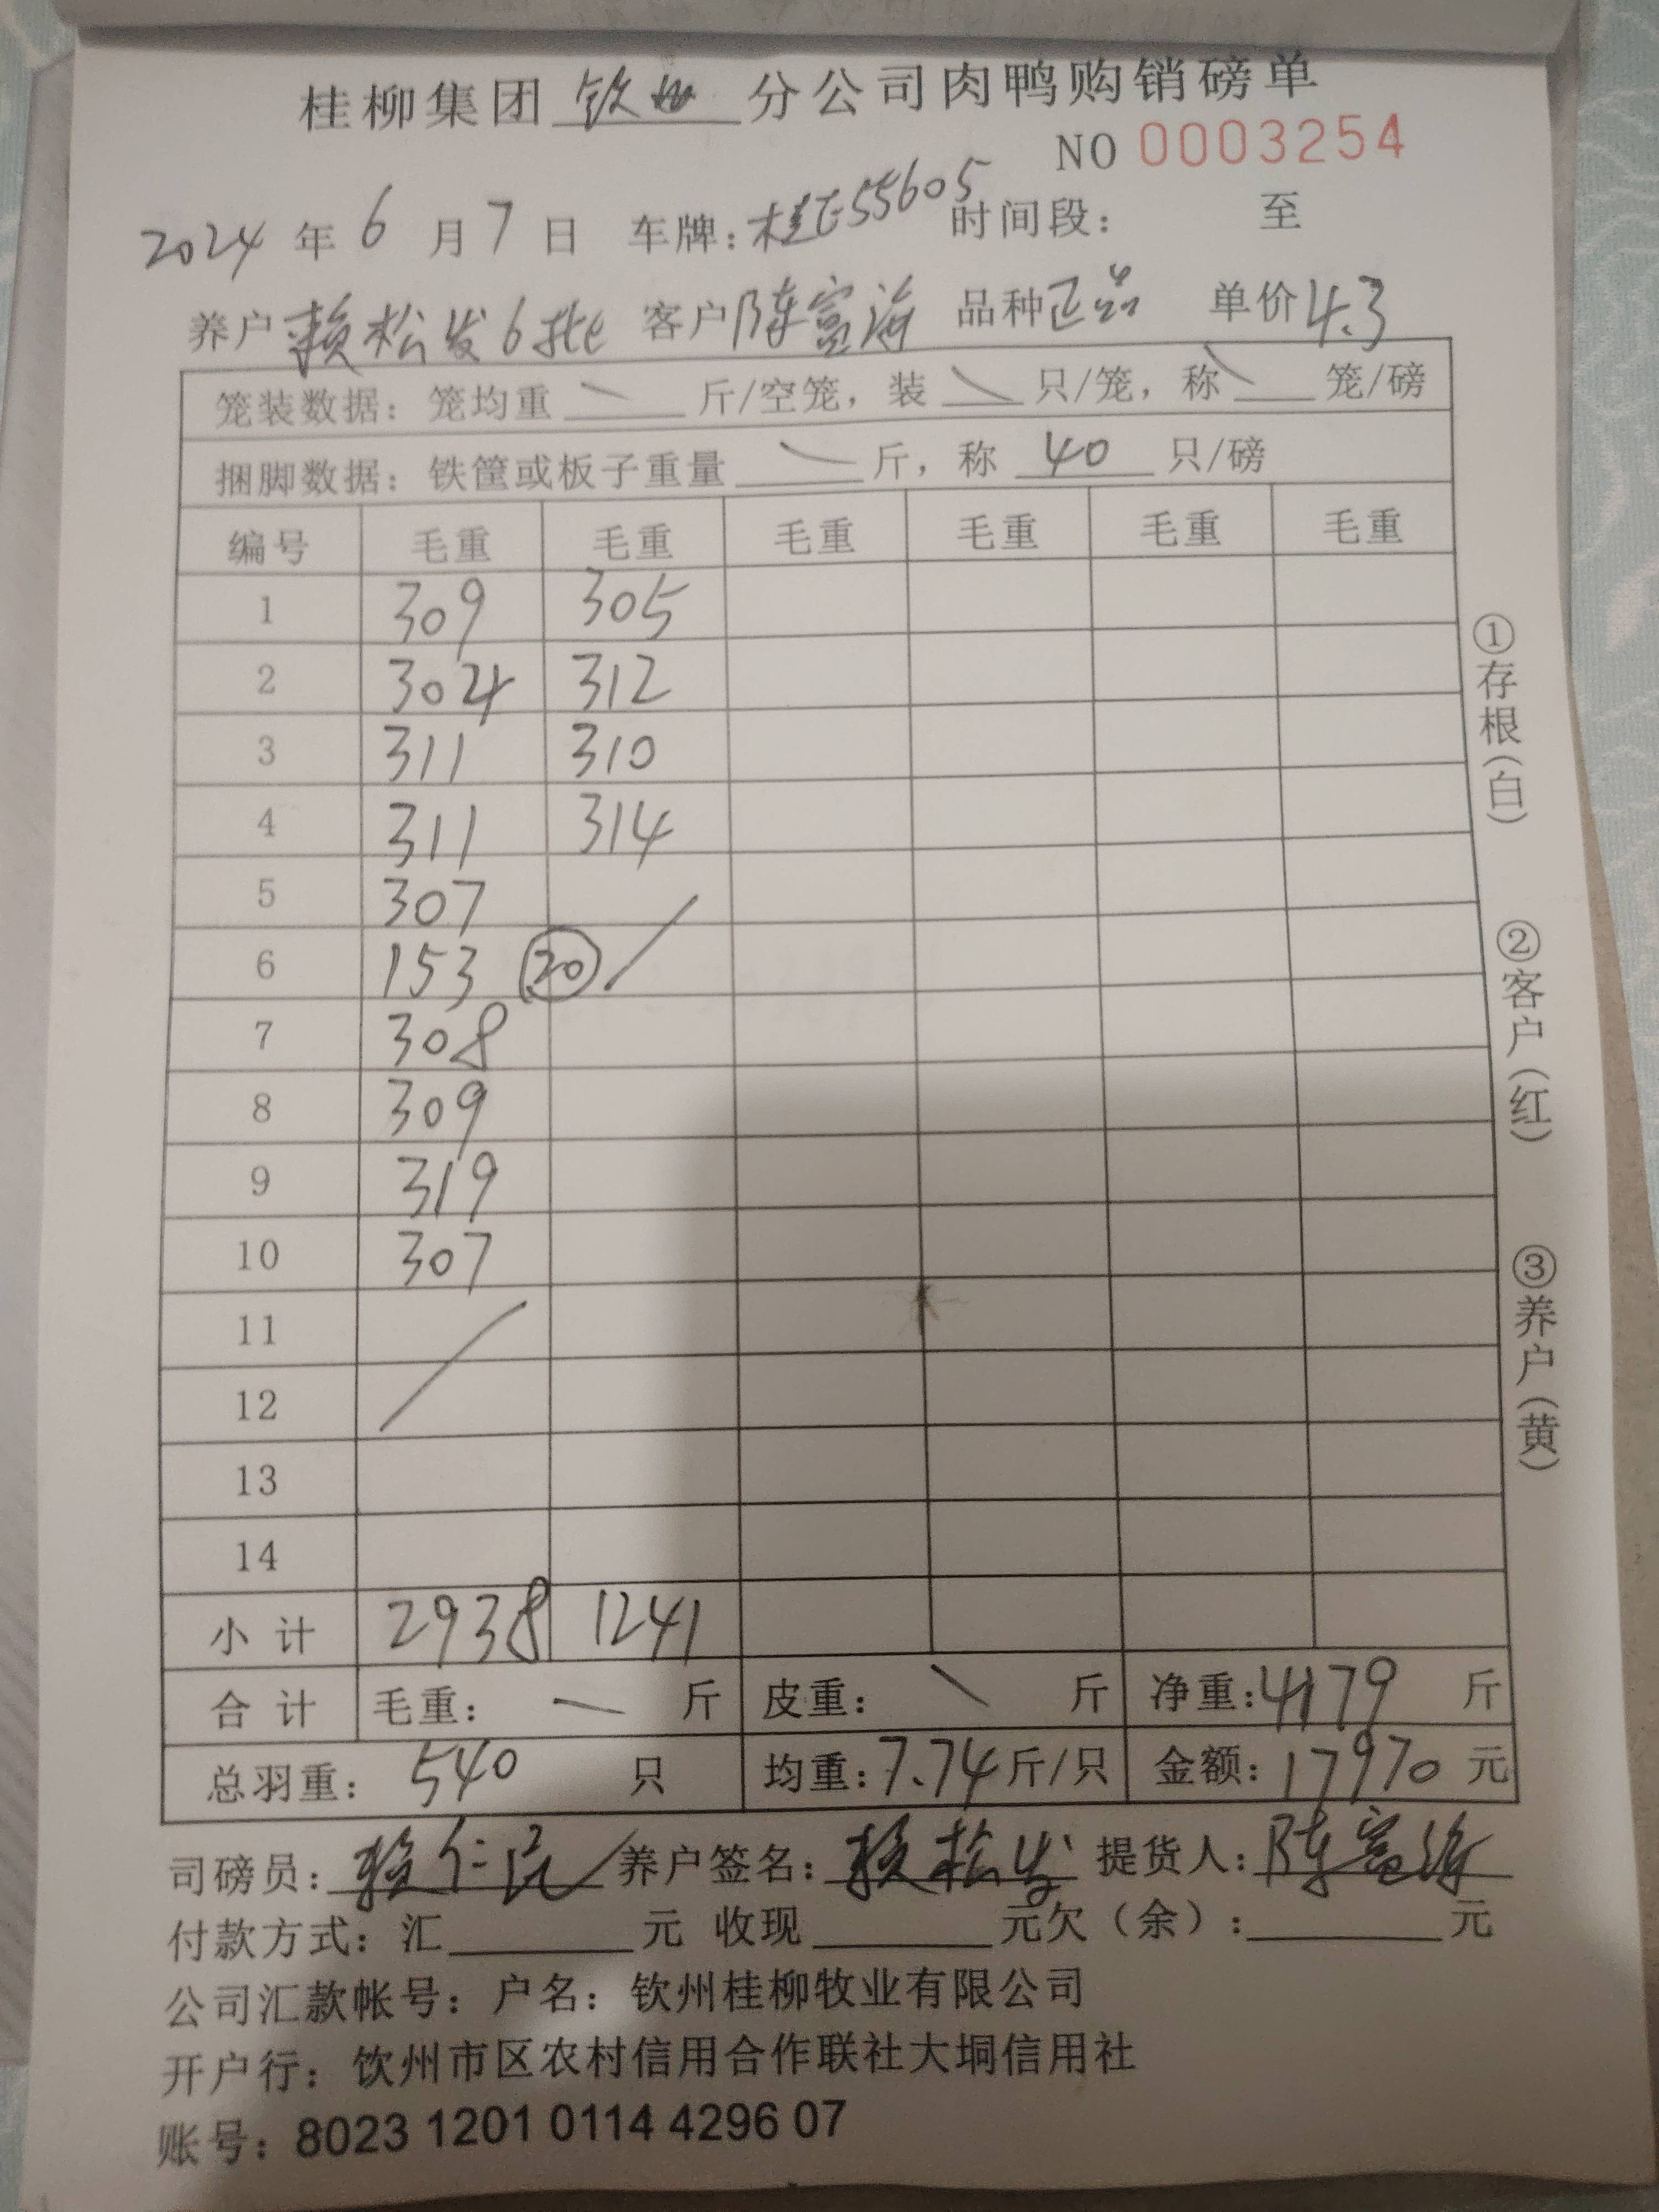 桂柳集团 钦州 分公司肉鸭购销磅单
NO 0003254
2024 年 6 月 7 日 车牌:桂E55605 时间段： 至
养户 赖松发6批 客户 陈富海 品种 正品 单价 4.3
笼装数据：笼均重 \ 斤/空笼，装 \ 只/笼，称 \ 笼/磅
捆脚数据：铁筐或板子重量 \ 斤，称 40 只/磅
编号 毛重 毛重 毛重 毛重 毛重 毛重
1 309 305
2 304 312
3 311 310
4 311 314
5 307
6 153 (20) /
7 308
8 309
9 319
10 307
11 /
12
13
14
小 计 2938 1241
合 计 毛重： \ 斤 皮重： \ 斤 净重：4179 斤
总羽重： 540 只 均重：7.74 斤/只 金额：17970 元
司磅员：赖仁民 养户签名：赖松发 提货人：陈富海
付款方式：汇 元 收现 元欠（余）： 元
公司汇款帐号：户名：钦州桂柳牧业有限公司
开户行：钦州市区农村信用合作联社大垌信用社
账号：8023 1201 0114 4296 07
①存根（白）
②客户（红）
③养户（黄）